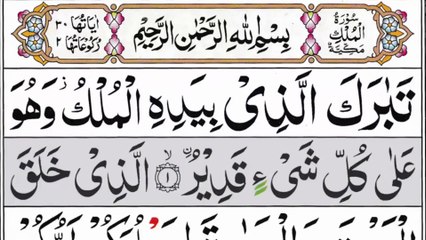 سُوْرَةُ الْمُلْكِ مَكِّيَّةٌ
بِسْمِ اللّٰهِ الرَّحْمٰنِ الرَّحِيْمِ
اٰیَاتُهَا ٣٠ رُكُوْعَاتُهَا ٢
تَبٰرَكَ الَّذِیْ بِیَدِهِ الْمُلْكُ ؗ وَهُوَ
عَلٰی كُلِّ شَیْءٍ قَدِیْرُ ۙ﴿۱﴾ ۨالَّذِیْ خَلَقَ